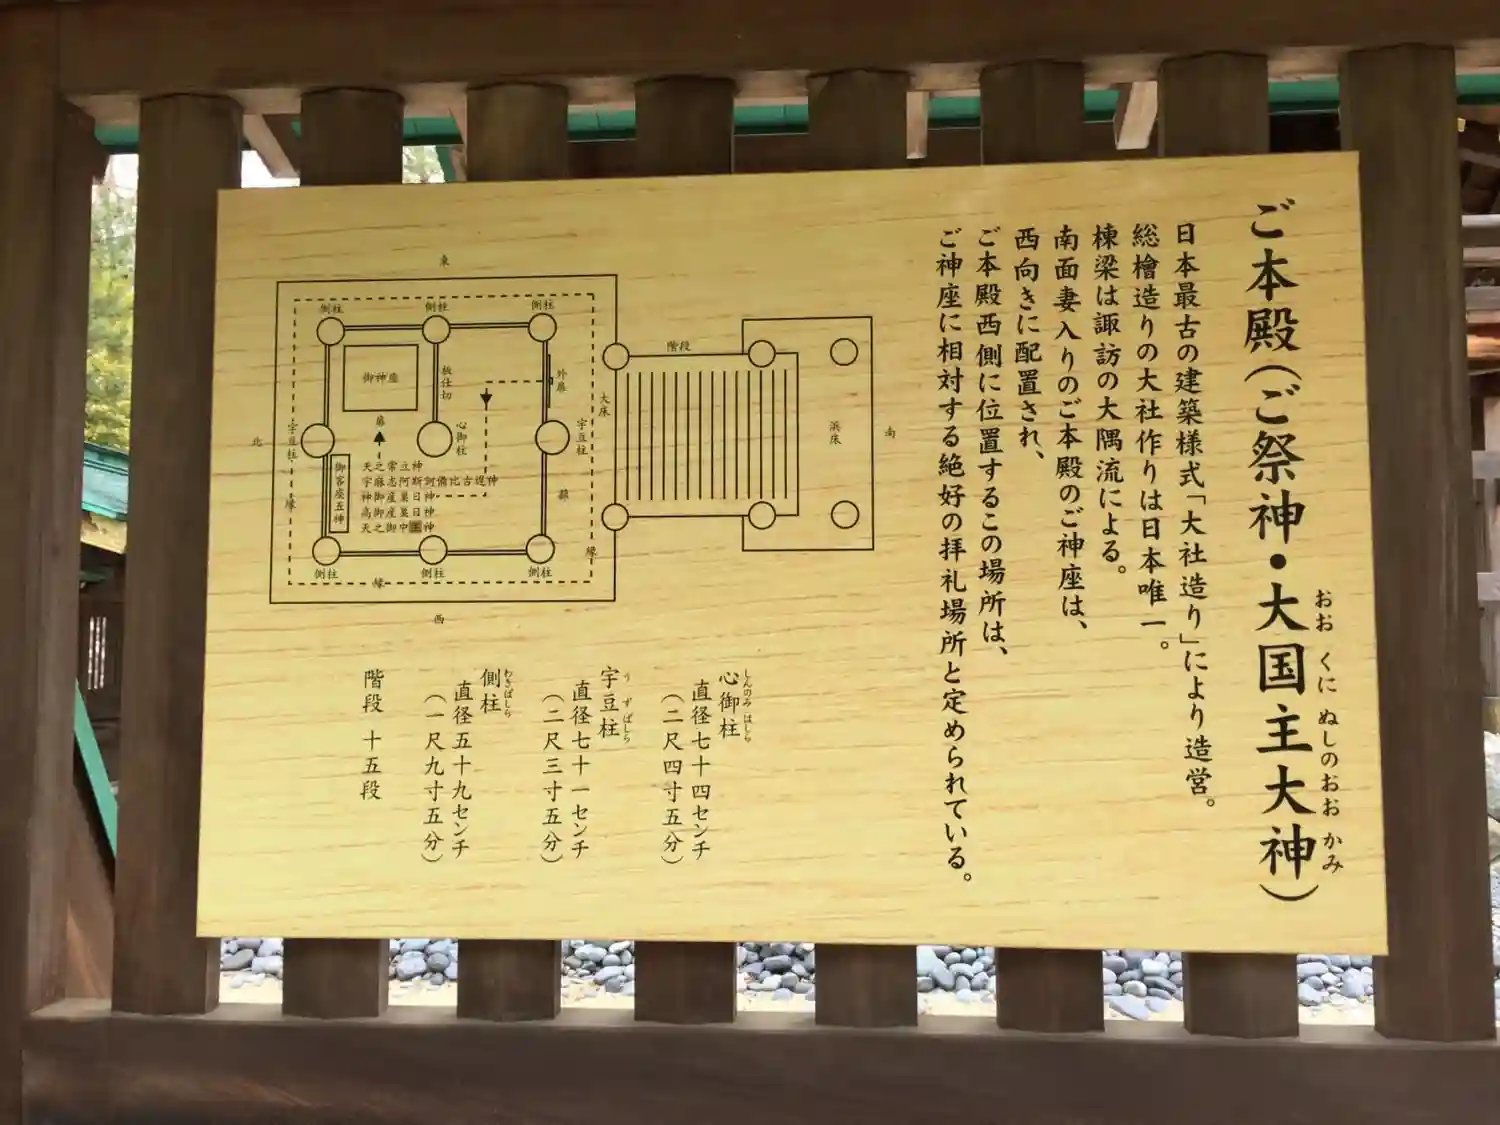 ご本殿(ご祭神・大国主大神)
おお くに ぬしのおお かみ
日本最古の建築様式「大社造り」により造営。
総檜造りの大社作りは日本唯一。
棟梁は諏訪の大隅流による。
南面妻入りのご本殿のご神座は、
西向きに配置され、
ご本殿西側に位置するこの場所は、
ご神座に相対する絶好の拝礼場所と定められている。
東
側柱
側柱
側柱
御神座
板仕切
外扉
大床
階段
浜床
南
北
宇豆柱
扉
心御柱
宇豆柱
御客座五神
天之常立神
宇麻志阿斯訶備比古遅神
神御産巣日神
高御産巣日神
天之御中主神
縁
側柱
縁
側柱
側柱
縁
西
心御柱
しんのみ はしら
直径七十四センチ
(二尺四寸五分)
宇豆柱
う ずばしら
直径七十一センチ
(二尺三寸五分)
側柱
わきばしら
直径五十九センチ
(一尺九寸五分)
階段 十五段